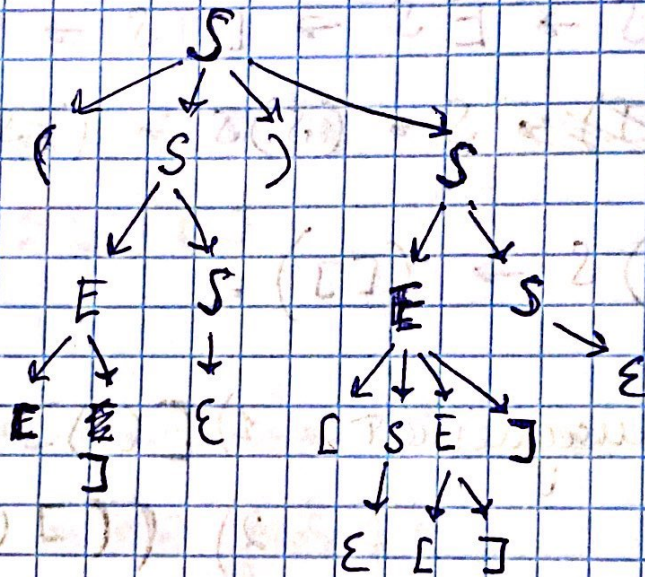 S
( S ) S
E S E S
E ε [ S E ] ε
]
ε [ ]